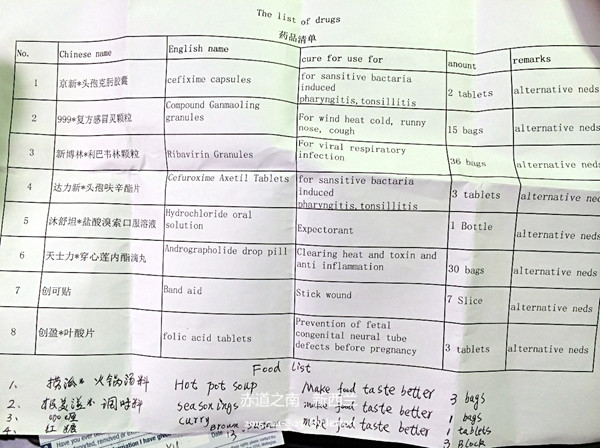 The list of drugs
药品清单
No. Chinese name English name cure for use for anount remarks
1 京新*头孢克肟胶囊 cefixime capsules for sansitive bactaria induced pharyngitis,tonsillitis 2 tablets alternative neds
2 999*复方感冒灵颗粒 Compound Ganmaoling granules For wind heat cold, runny nose, cough 15 bags alternative neds
3 新博林*利巴韦林颗粒 Ribavirin Granules For viral respiratory infection 36 bags alternative neds
4 达力新*头孢呋辛酯片 Cefuroxime Axetil Tablets for sansitive bactaria induced pharyngitis,tonsillitis 3 tablets alternative neds
5 沐舒坦*盐酸溴索口服溶液 Hydrochloride oral solution Expectorant 1 Bottle alternative neds
6 天士力*穿心莲内酯滴丸 Andrographolide drop pill Clearing heat and toxin and anti inflammation 30 bags alternative neds
7 创可贴 Band aid Stick wound 7 Slice alternative neds
8 创盈*叶酸片 folic acid tablets Prevention of fetal congenital neural tube defects before pregnancy 3 tablets alternative neds
Food List
1、 火锅汤料 Hot pot soup Make food taste better 3 bags
2、 调味料 seasonings make food taste better 1 bags
3、 咖喱 curry make food taste better 1 tablets
4、 红糖 Brown 3 Block
赤道之南